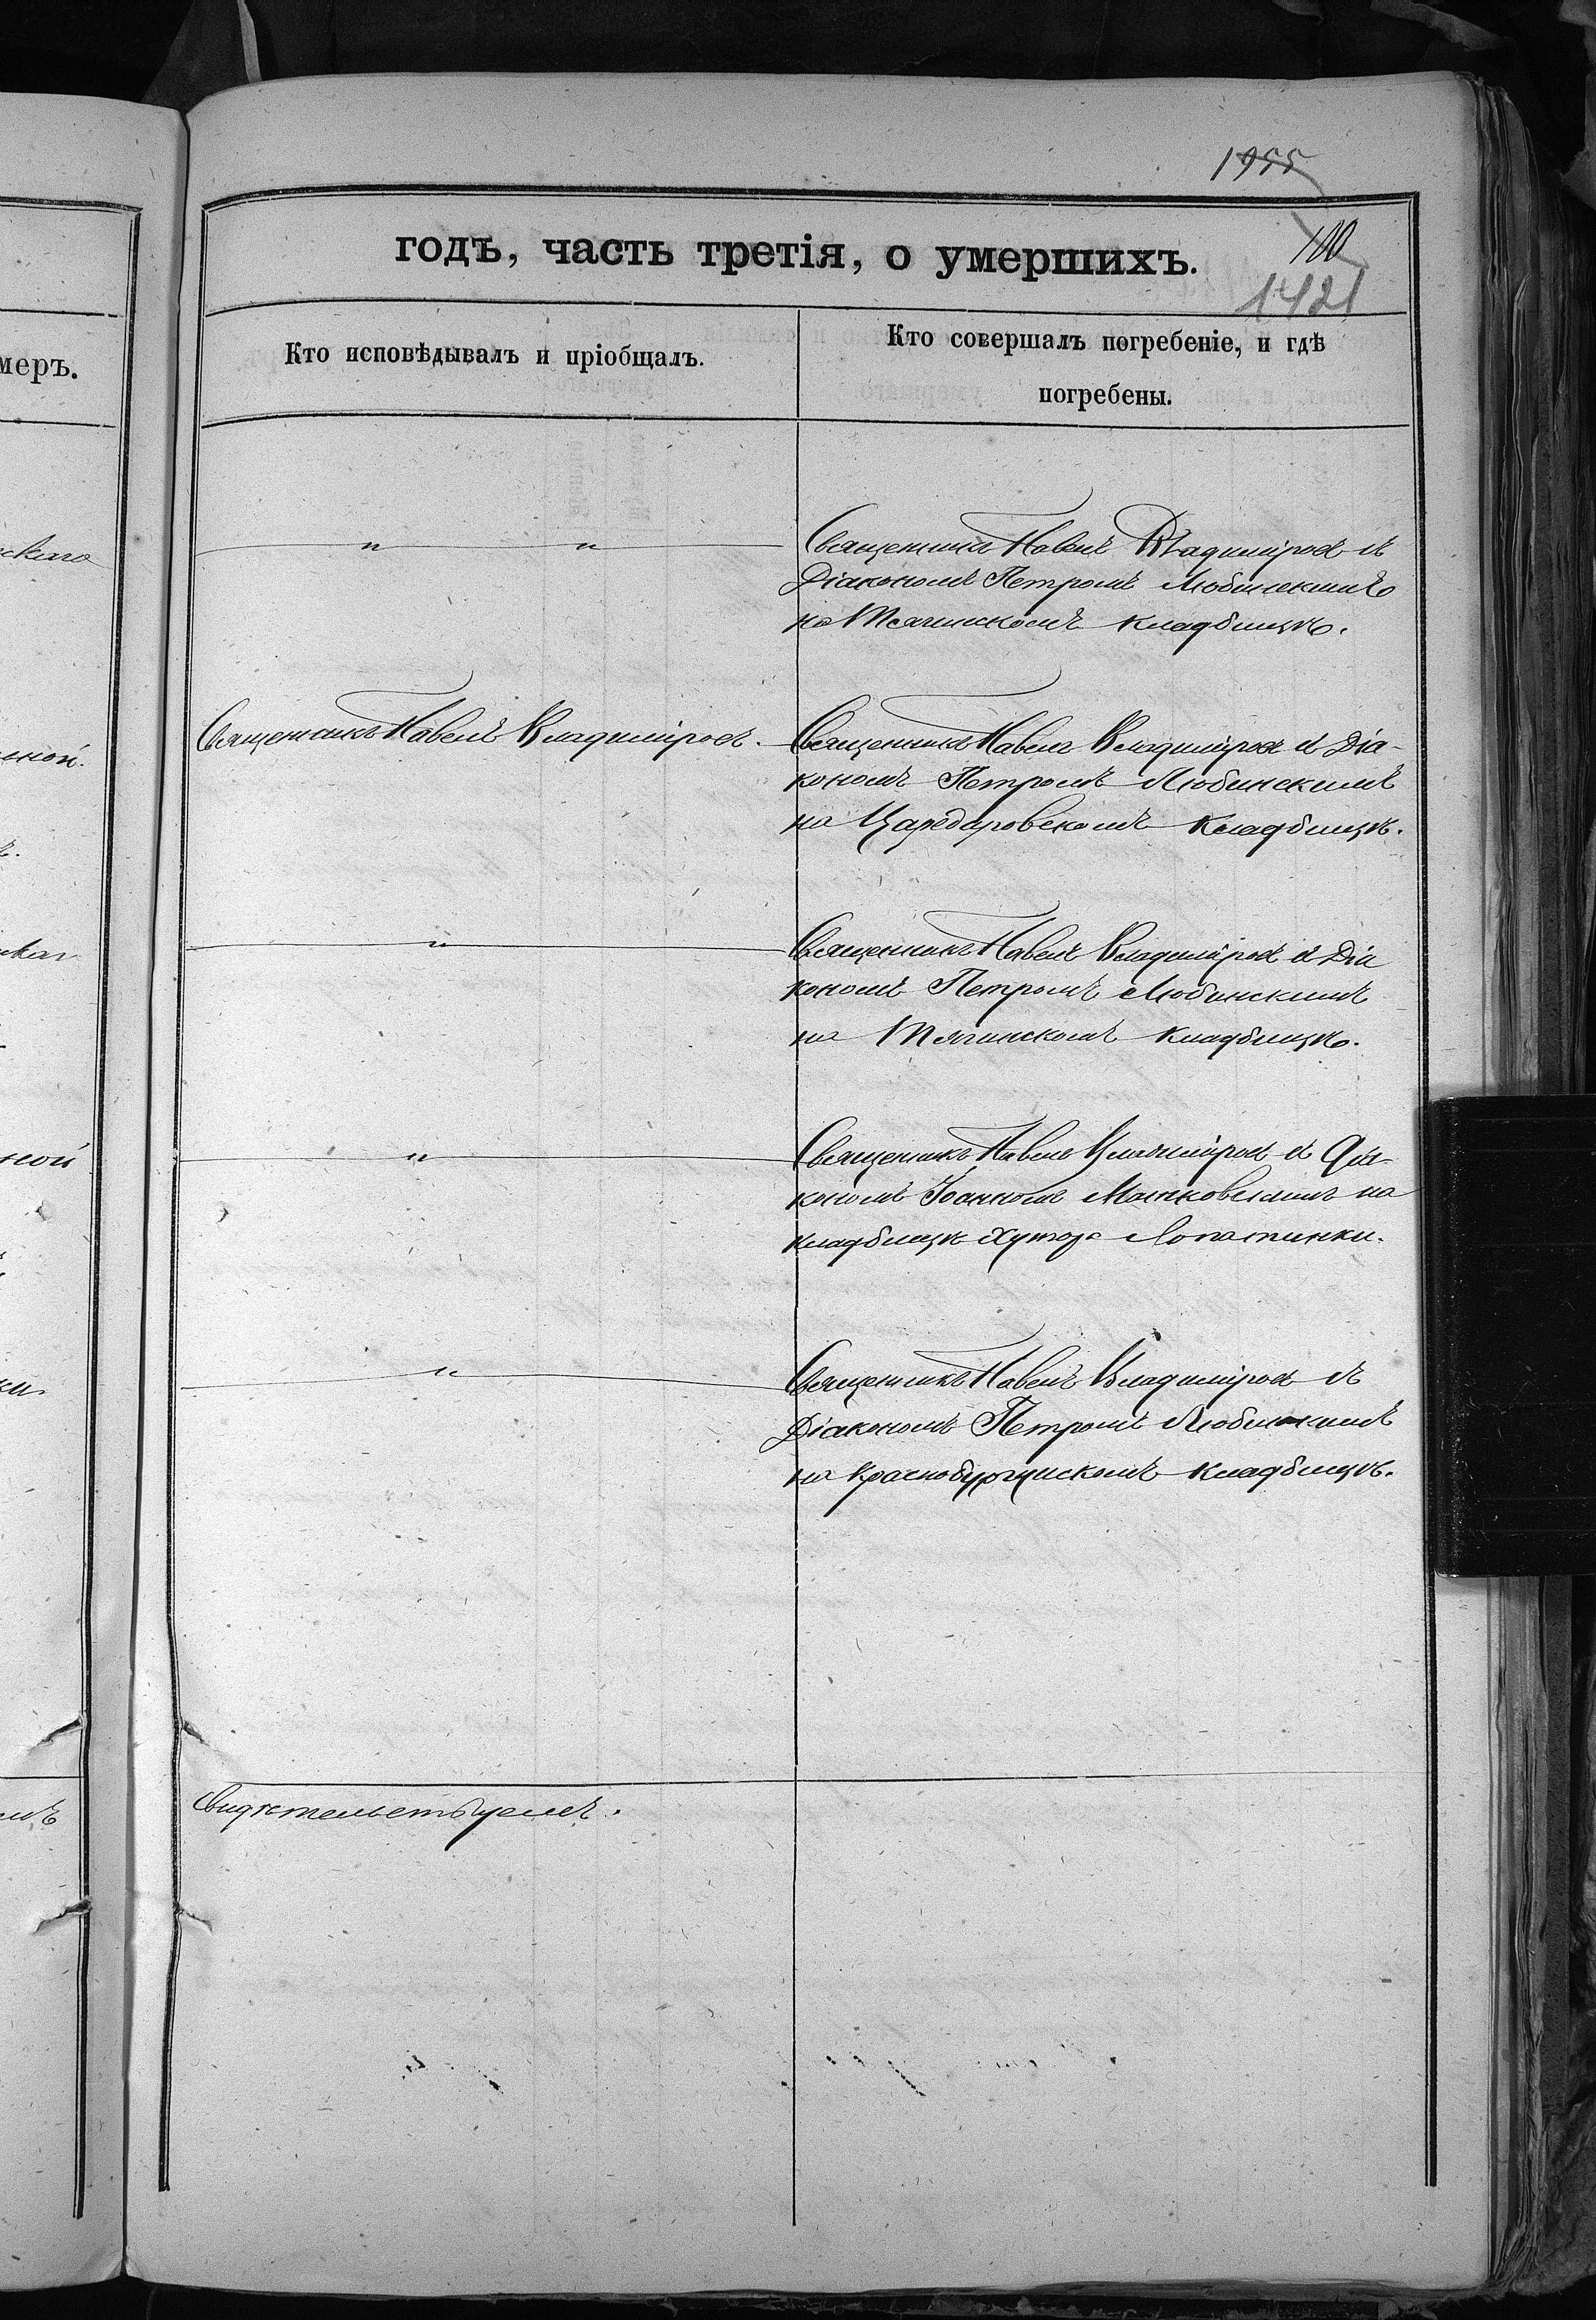 1955
годъ, часть третія, о умершихъ.
100
1421
Кто исповѣдывалъ и пріобщалъ.
Кто совершалъ погребеніе, и гдѣ
погребены.
меръ.
Священникъ Павелъ Владиміровъ съ
Діакономъ Петромъ Любинскимъ
на Тягинскомъ кладбищѣ.
Священникъ Павелъ Владиміровъ.
Священникъ Павелъ Владиміровъ съ Діа-
кономъ Петромъ Любинскимъ
на Царедаровскомъ кладбищѣ.
Священникъ Павелъ Владиміровъ съ Діа
кономъ Петромъ Любинскимъ
на Тягинскомъ кладбищѣ.
Священникъ Павелъ Владиміровъ съ Діа-
кономъ Іоанномъ на
кладбищѣ хутора Лопатинки.
Священникъ Павелъ Владиміровъ съ
Діакономъ Петромъ Любинскимъ
на кладбищѣ.
свидѣтельствуемъ.